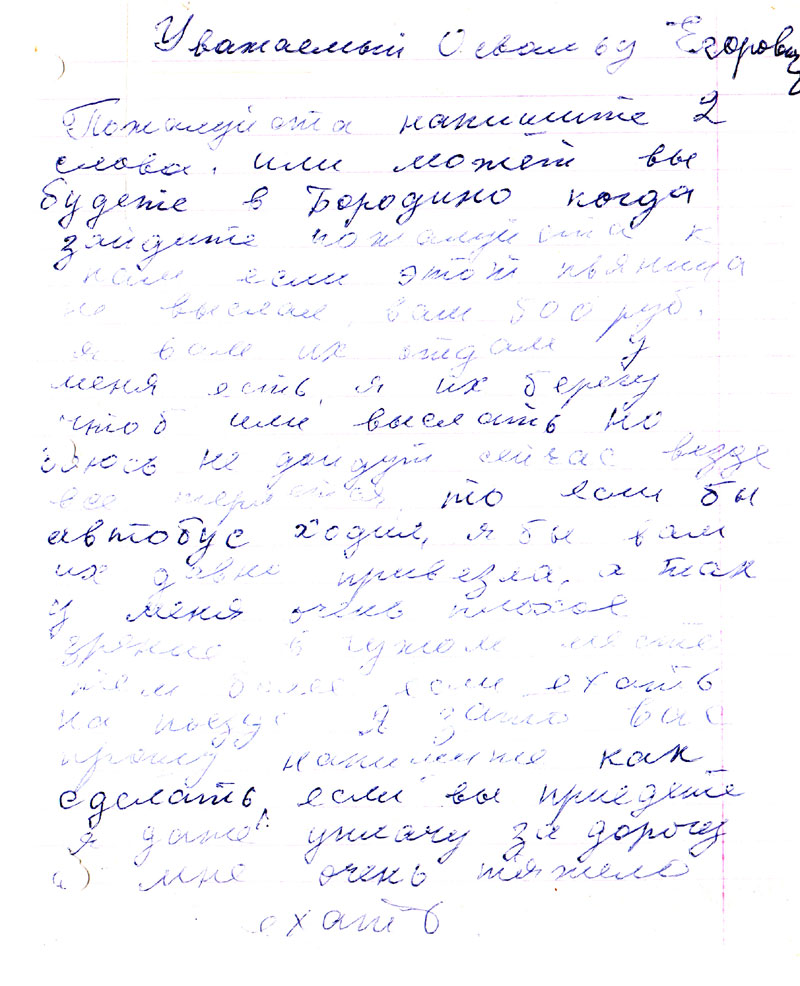 Уважаемый Освальду Егорович
Пожалуйста напишите 2
слова. или может вы
будете в Бородино когда
зайдите пожалуйста к
нам если этот пьяница
не выслал вам 800 руб.
я вам их отдам у
меня есть, я их берегу
чтоб или выслать но
боюсь не дойдут сейчас везде
все теряется, то если бы
автобус ходил, я бы вам
их давно привезла, а так
у меня очень плохое
зрение в чужом месте
тем более если ехать
на поезде Я зато вас
прошу напишите как
сделать, если вы приедете
я даже уплачу за дорогу
а мне очень тяжело
ехать